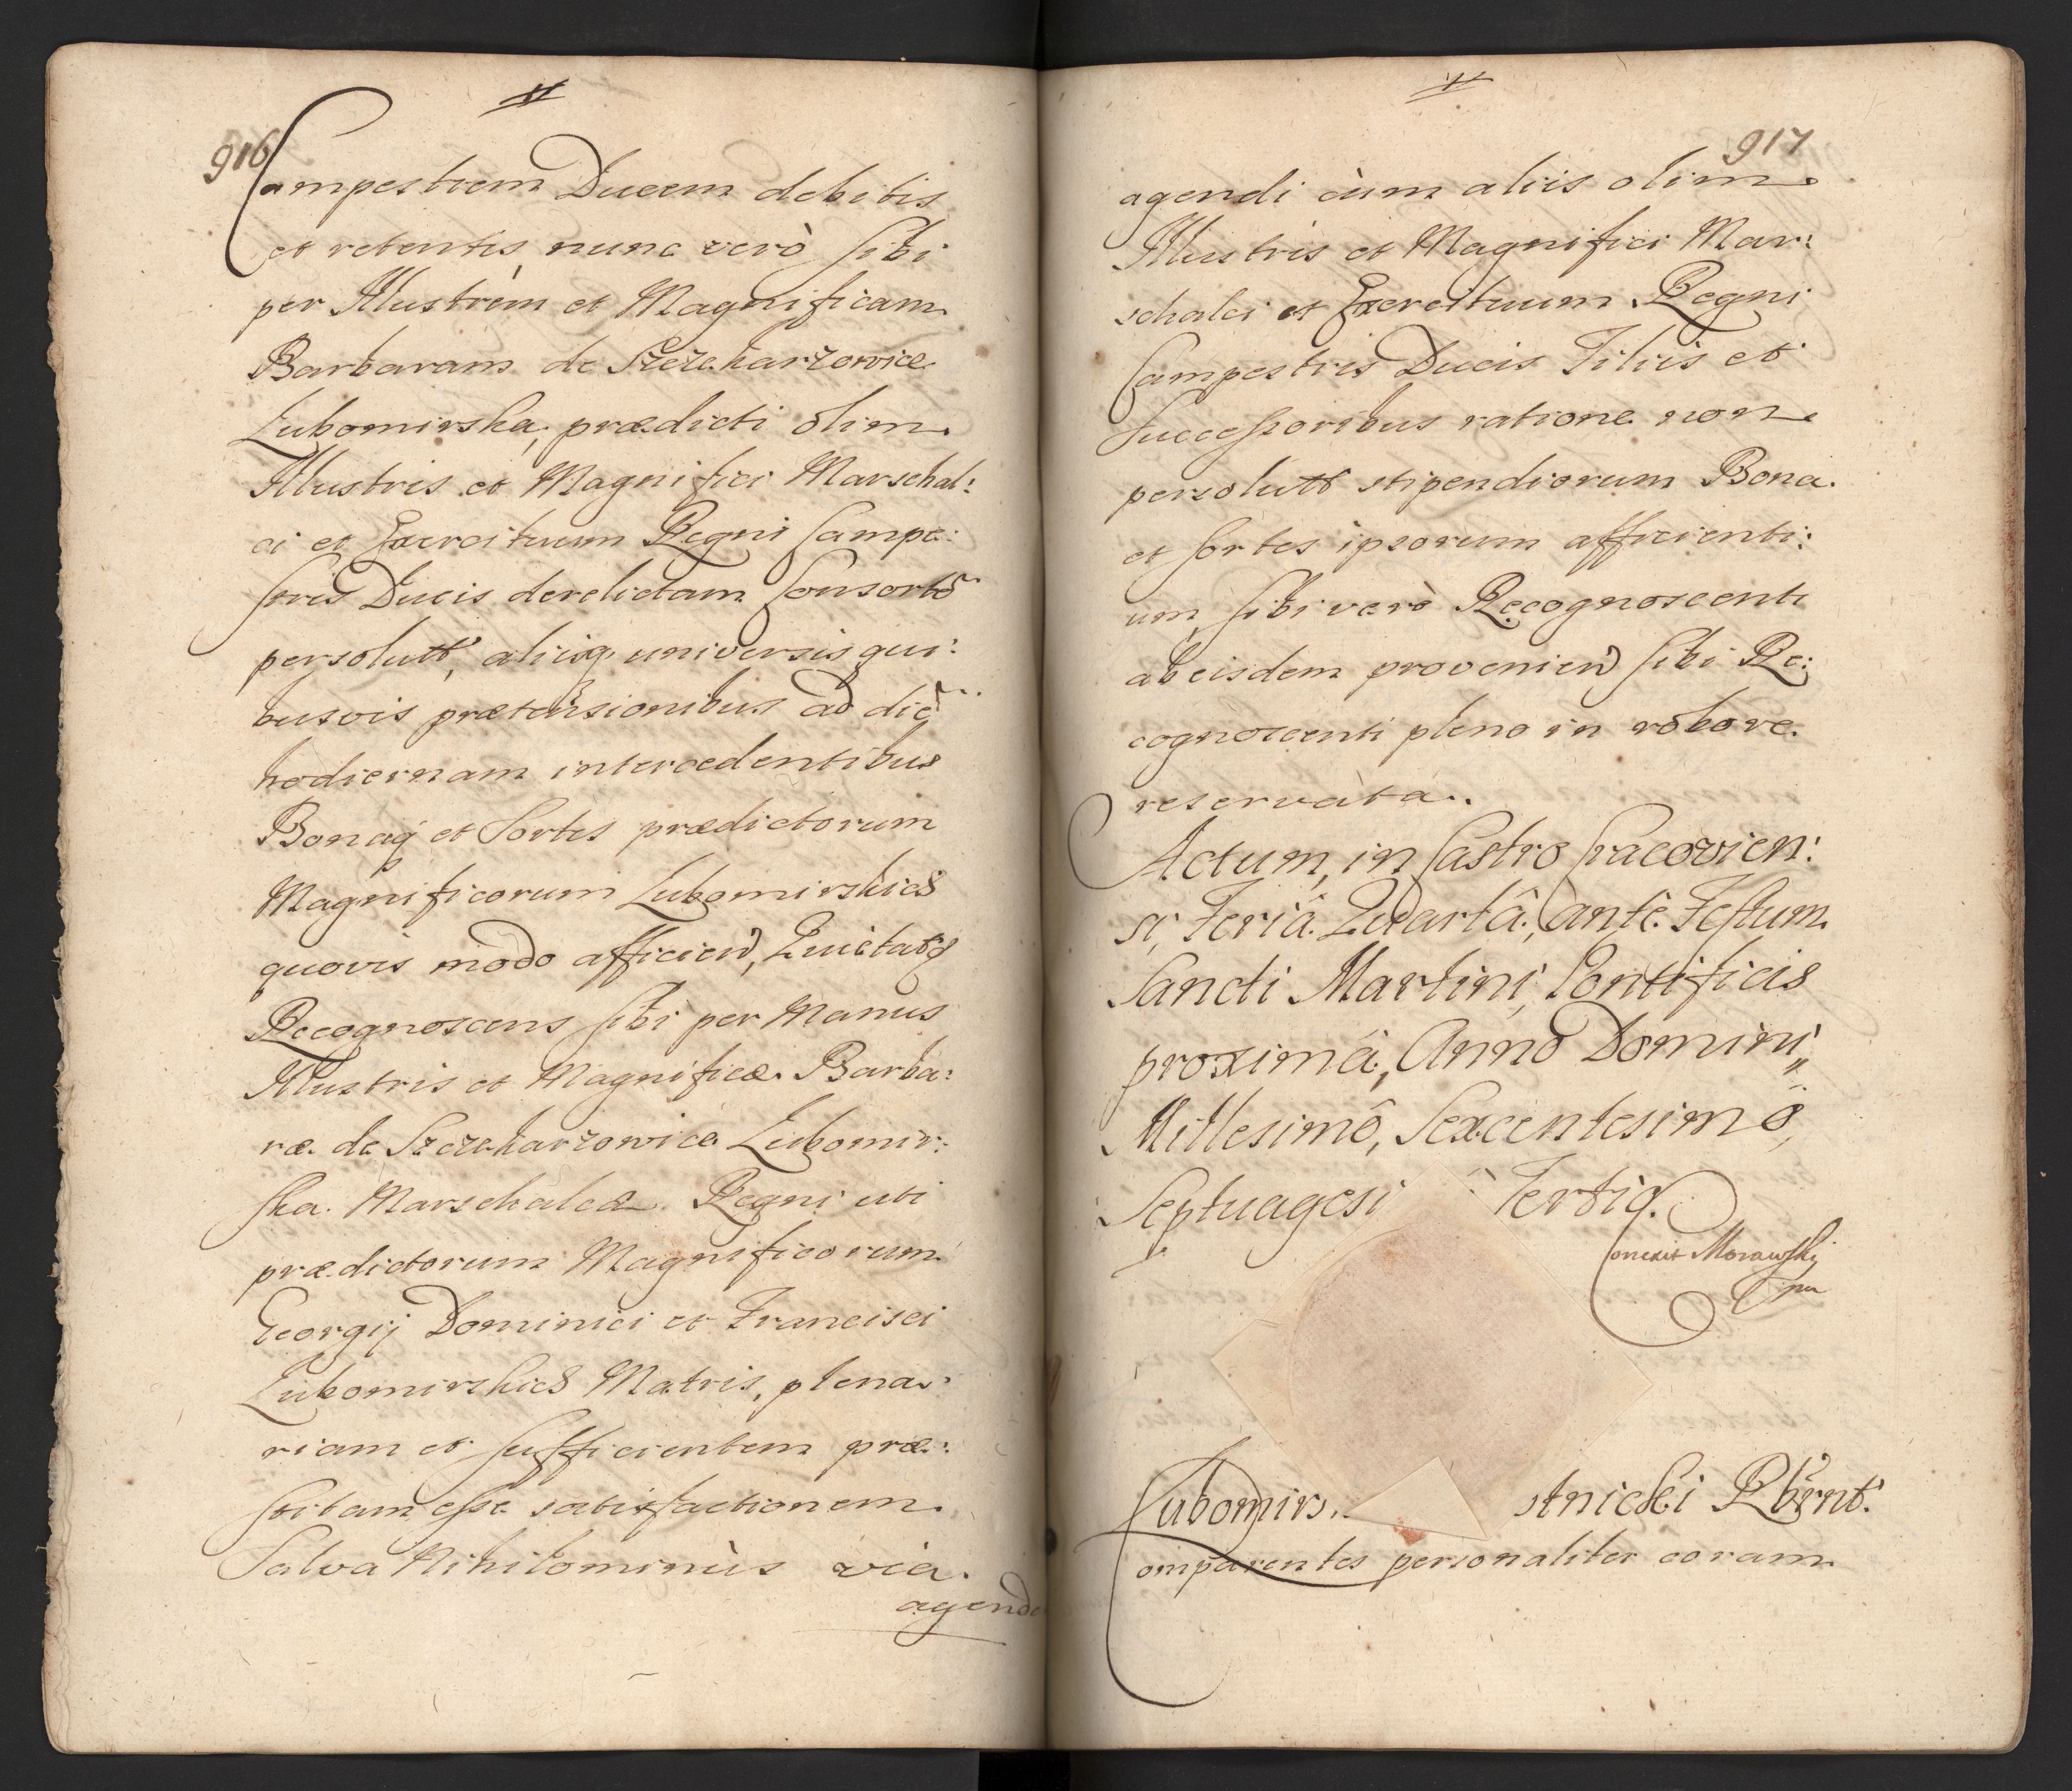 916
Campestrem Ducem debitis
et retentis nunc verò sibi
per Illustrem et Magnificam
Barbaram de Szczekarzowice
Lubomirska, prædicti olim
Illustris et Magnifici Marschal:
ci et Exercituum Regni Campe:
stris Ducis derelictam Consortẽ
persolutt, alijsq universis qui:
busvis prætensionibus ad diẽ
hodiernam intercedentibus
Bonaq et Sortes prædictorum
Magnificorum Lubomirskich
quovis modo afficien, Quietatq
Recognoscens sibi per Manus
Illustris et Magnificæ Barba:
ræ de Szczekarzowice Lubomir:
ska Marschalcæ Regni uti
prædictorum Magnificorum
Georgij Dominici et Francisci
Lubomirskich Matris, plena:
riam et sufficientem præ:
stitam esse satisfactionem
Salva Nihilominùs via
agendi
917
agendi cùm alijs olim
Illustris et Magnifici Mar:
schalci et Exercituum Regni
Campestris Ducis Filijs et
Successoribus ratione non
persolutt stipendiorum Bona
et sortes ipsorum afficienti:
um, sibi verò Recognoscenti
ab eisdem provenien sibi Re:
cognoscenti pleno in robore
reservata.
Actum, in Castro Cracovien:
si, Feriâ Quartâ, antè Festum
Sancti Martini, Pontificis
proximâ, Anno Domini
Millesimô, Sexcentesimô,
Septuagesi Tertio.
Correxit Morawski
mp
Lubomirs stnicki Rbrnt:
Comparentes personaliter coram